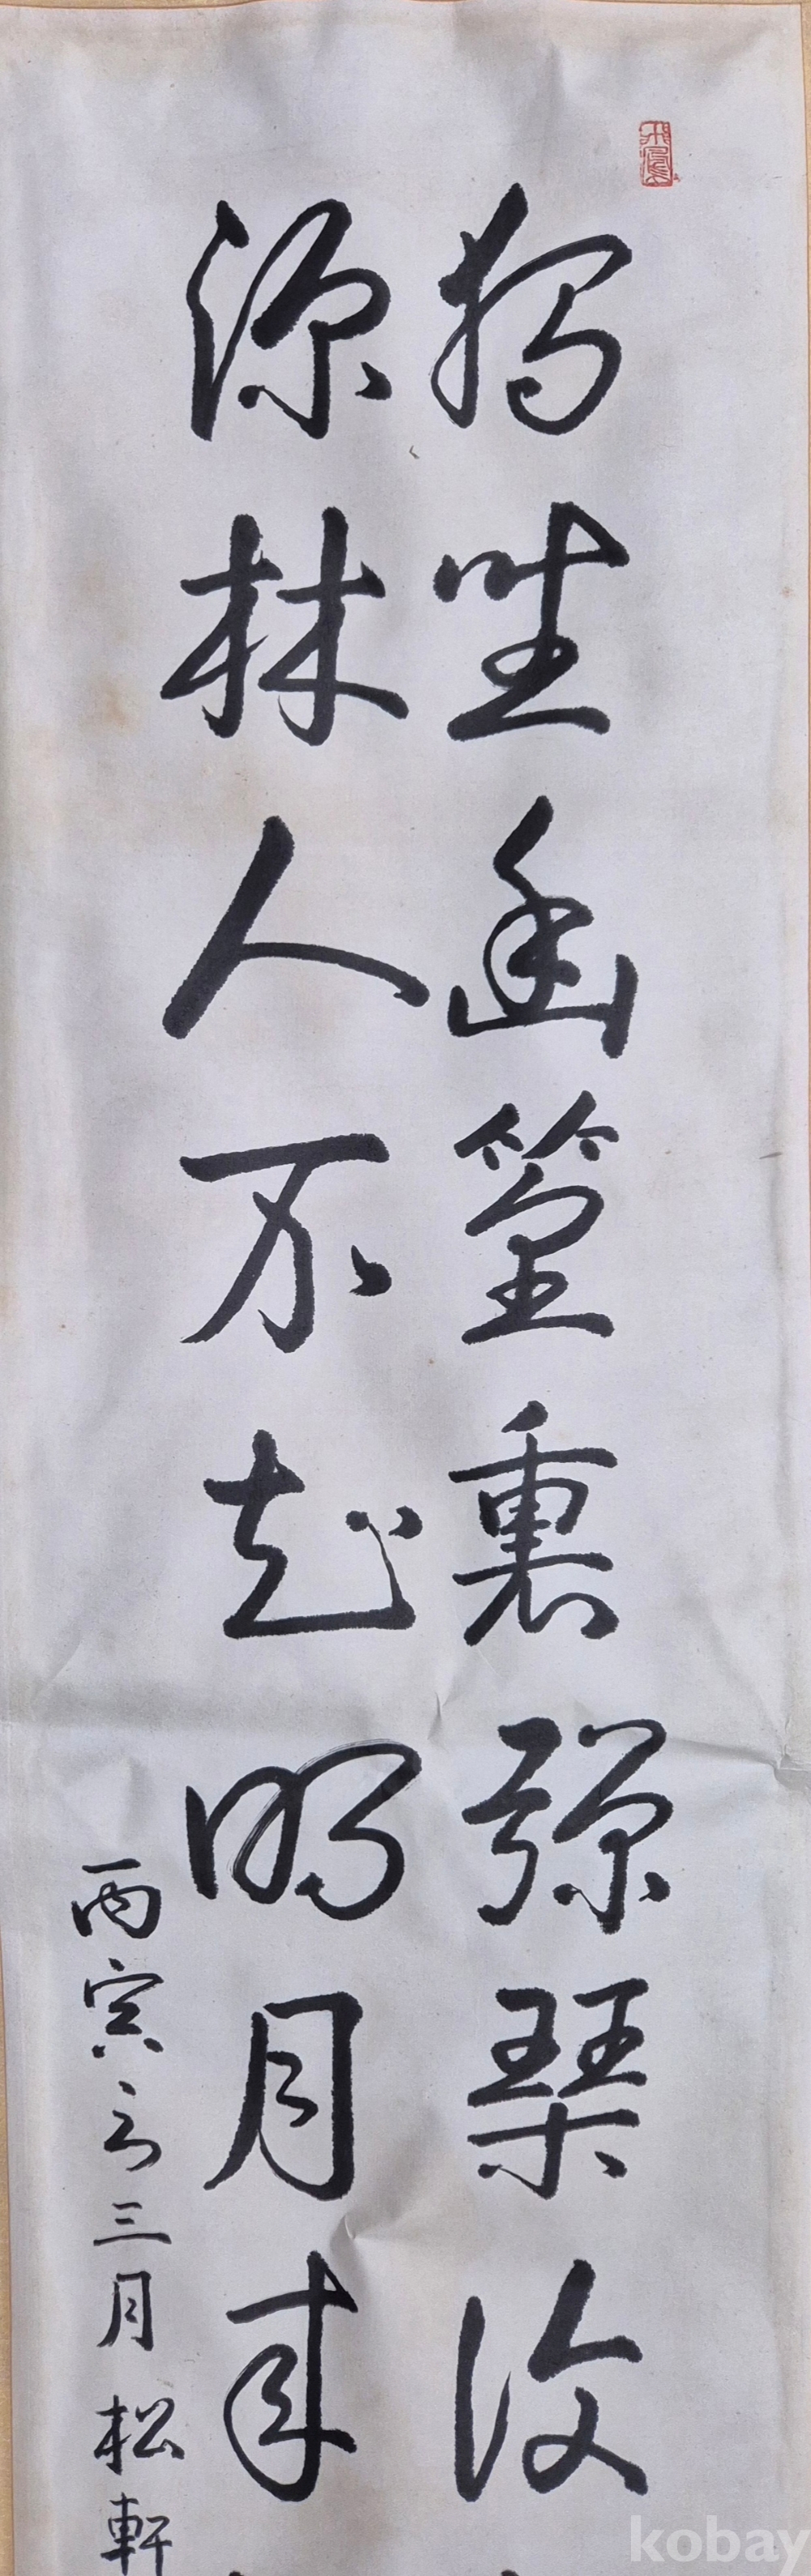 獨坐幽篁裏彈琴復
深林人不知明月來
丙寅三月松軒
kobay